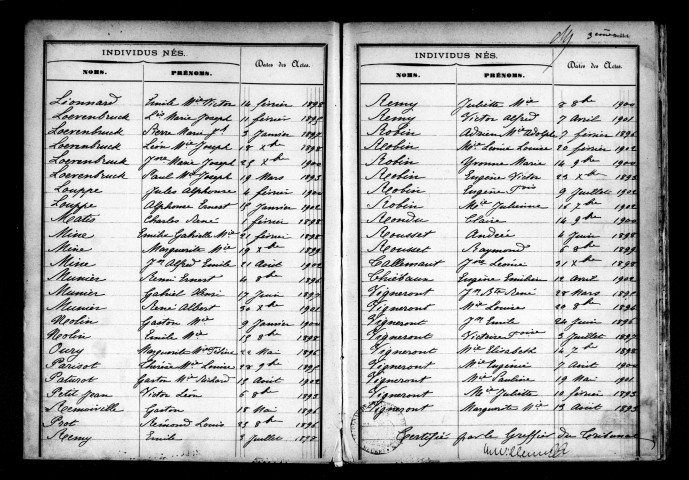 INDIVIDUS NÉS.
NOMS. PRÉNOMS. Dates des Actes.
Lionnard Emile Mie Victor 14 février 1898
Loevenbruck Lis Marie Joseph 11 février 1895
Loevenbruck Pierre Marie Jh 3 Janvier
Loevenbruck Léon Mie Joseph 18 Xbre
Loevenbruck Jne Marie Joseph 28 Xbre 1900
Loevenbruck Paul Mie Joseph 19 Mars 1893
Louppe Jules Alphonse 4 février 1900
Louppe Alphonse Ernest Janvier 1902
Charles René février 1895
Mine Emilie Gabrielle Mie 21 février 1898
Mine Marguerite Mie 18 Xbre 1899
Mine Jn Alfred Emile 21 Août 1902
Munier Remi Ernest 4 8bre 1896
Munier Gabriel Henri Juin 1897
Munier René Albert 30 Xbre 1901
Gaston Mie 9 Janvier 1900
Emile Mie 8bre 1898
Oury Marguerite Mie 22 Mai 1896
Parisot Thérèse Mie Louise 28 9bre 1895
Paturot Gaston Mie Richard 19 Août 1902
Petit Jean Victor Léon 6 8bre 1893
Remoiville Gaston 18 Mai 1896
Prot Remond Louis 23 8bre 1896
Remy Emile 3 Juillet
3ème
INDIVIDUS NÉS.
NOMS. PRÉNOMS. Dates des Actes.
Remy Juliette Mie 8 8bre 1900
Remy Victor Alfred 7 Avril 1901
Robin Adrien Mie Adolphe 7 février 1896
Robin Mie Louise 20 février 1898
Robin Yvonne Marie 14 9bre 1900
Robin Eugène Victor 23 Xbre 1893
Robin Eugène Fois 9 Juillet 1902
Robin Mie Julienne 16 7bre 1902
Rondu Claire 14 9bre 1900
Rousset André 4 Juin 1898
Rousset Raymond 6 8bre 1899
Callemaut Jne Léonie 31 Xbre 1898
Thiébaux Eugène Emilien 12 Avril 1902
Vigneront Jn Bte René 28 Mars 1895
Vigneront Mie Louise 20 8bre 1896
Vigneront Jn Emile 24 Juin 1896
Vigneront Victoire 3 Juillet 1897
Vigneront Mie Elisabeth 14 7bre 1898
Vigneront Mie Eugénie 7 Août 1900
Vigneront Mie Pauline 19 Mai 1901
Vigneront Mie Juliette 10 février 1893
Vigneront Marguerite Mie 13 Août 1893
Certifié par le Greffier du Tribunal